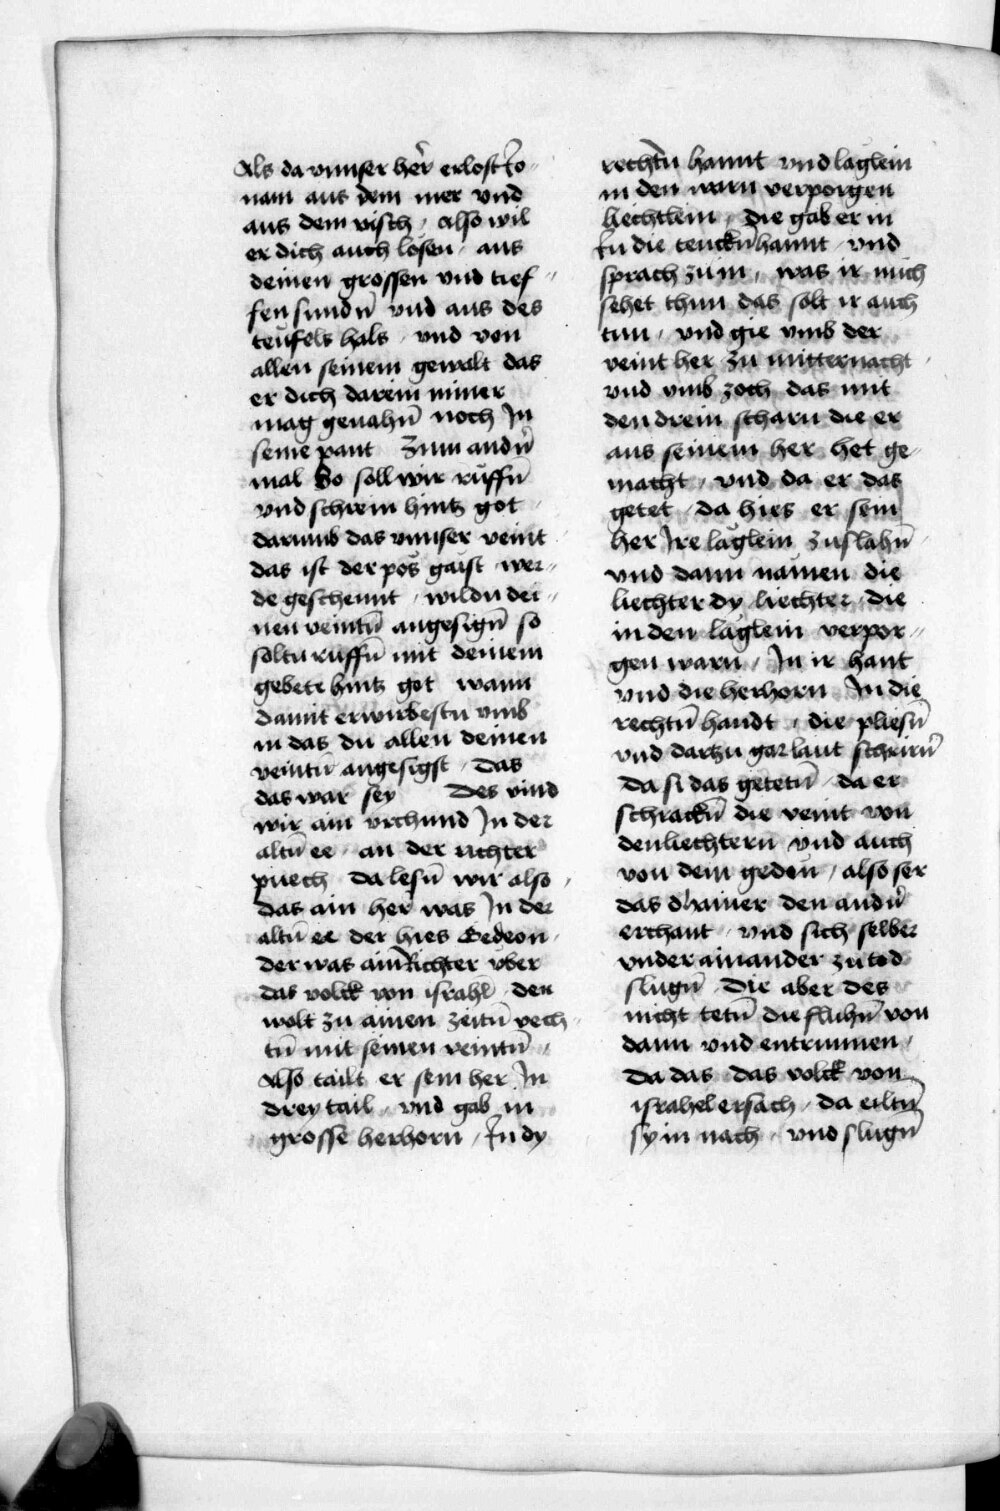 Als da vnnser her̄ erlost Jo-
nam aus dem mer vnd
aus dem visch, also wil
er dich auch lösen, aus
deinen grossen vnd tief-
fen sundn̄ vnd aus des
teufels hals, vnd von
allen seinem gewalt das
er dich darein nimer
mag genahn̄ noch In
seine pant Zum andn̄
mal So soll wir rüffn̄
vnd schrein hintz got
darumb das vnnser veint
das ist der pös gaist wer-
de geschennt, wildu dei-
nen veintn̄ angesign̄ so
soltu rüffn̄ mit deinem
gebete hintz got wann
damit erwirbestu vmb
in das du allen deinen
veintn̄ angesigst, Das
das war sey Des vind
wir ain vrchund In der
altn̄ ee, an der richter
puech da lesn̄ wir also,
das ain her was In der
altn̄ ee der hies Gedeon,
der was ain Richter vber
das volck von israhl, den
wolt zu ainen zeitn̄ vech-
tn̄ mit seinen veintn̄,
Also tailt er sein her In
drey tail, vnd gab in
grosse herhorn, In dy
rechtn̄ hannt vnd läglein
in den warn verporgen
liechtlein, Die gab er in
In die tenckn̄ hannt, vnd
sprach zu in, was ir mich
sehet thun das solt ir auch
tun, vnd gie vmb der
veint her zu mitternacht,
vnd vmb zoch das mit
den drein scharn die er
aus seinem her het ge-
macht, vnd da er das
getet, da hies er sein
her Ire läglein zuslahn̄,
vnd dann namen die
liechter dy liechter, die
in den läglein verpor-
gen warn, In ir hant
vnd die herhorn In die
rechtn̄ handt, die pliesn̄
vnd dartzu gar laut schrirn̄
Da si das getetn̄, da er
schrackn̄ die veint von
den liechtern vnd auch
von dem gedön, also ser
das d ainer den andn̄
erchant, vnd sich selber
vnder ainander zu tod
slugn̄, Die aber des
nicht tetn̄ die fluhn̄ von
dann vnd entrunnen,
Da das das volck von
israhel ersach, da eiltn̄
sy in nach, vnd slugn̄